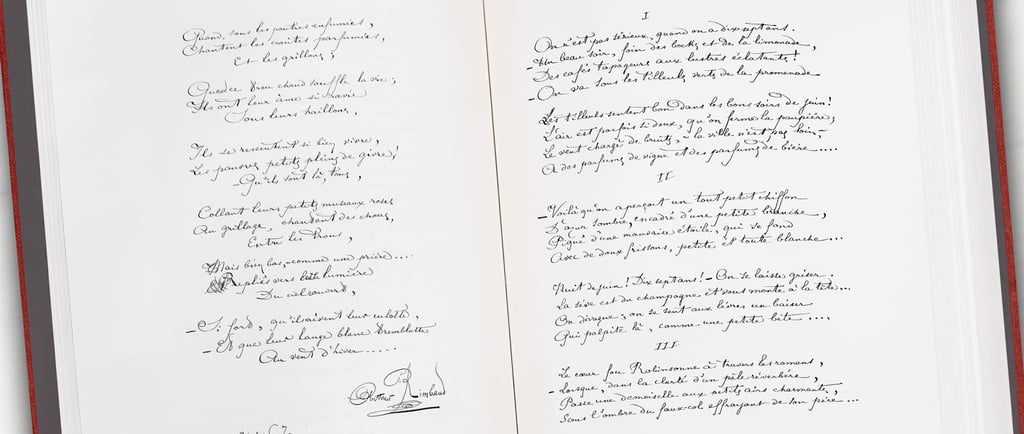 Quand, sous les poutres enfumées,
Chantent les croûtes parfumées,
Et les grillons;
Que ce trou chaud souffle la vie;
Ils ont leur âme si ravie
Sous leurs haillons,
Ils se ressentent si bien vivre,
Les pauvres petits pleins de givre!
– Qu'ils sont là, tous,
Collant leurs petits museaux roses
Au grillage, chantant des choses,
Entre les trous,
Mais bien bas, – comme une prière....
Repliés vers cette lumière
Du ciel ouvert,
– Si fort, qu'ils crèvent leur culotte,
– Et que leur lange blanc tremblotte
Au vent d'hiver.....
Arthur Rimbaud
I
On n'est pas sérieux, quand on a dix-sept ans.
– Un beau soir, foin des bocks et de la limonade,
Des cafés tapageurs aux lustres éclatants!
– On va sous les tilleuls verts de la promenade
Les tilleuls sentent bon dans les bons soirs de juin!
L'air est parfois si doux, qu'on ferme la paupière;
Le vent chargé de bruits, – la ville n'est pas loin –
A des parfums de vigne et des parfums de bière....
II
– Voilà qu'on aperçoit un tout petit chiffon
D'azur sombre, encadré d'une petite branche,
Piqué d'une mauvaise étoile, qui se fond
Avec de doux frissons, petite et toute blanche...
Nuit de juin! Dix-sept ans! – On se laisse griser.
La sève est du champagne et vous monte à la tête...
On divague; on se sent aux lèvres un baiser
Qui palpite là, comme une petite bête....
III
Le cœur fou Robinsonne à travers les romans,
– Lorsque, dans la clarté d'un pâle réverbère,
Passe une demoiselle aux petits airs charmants,
Sous l'ombre du faux-col effrayant de son père...